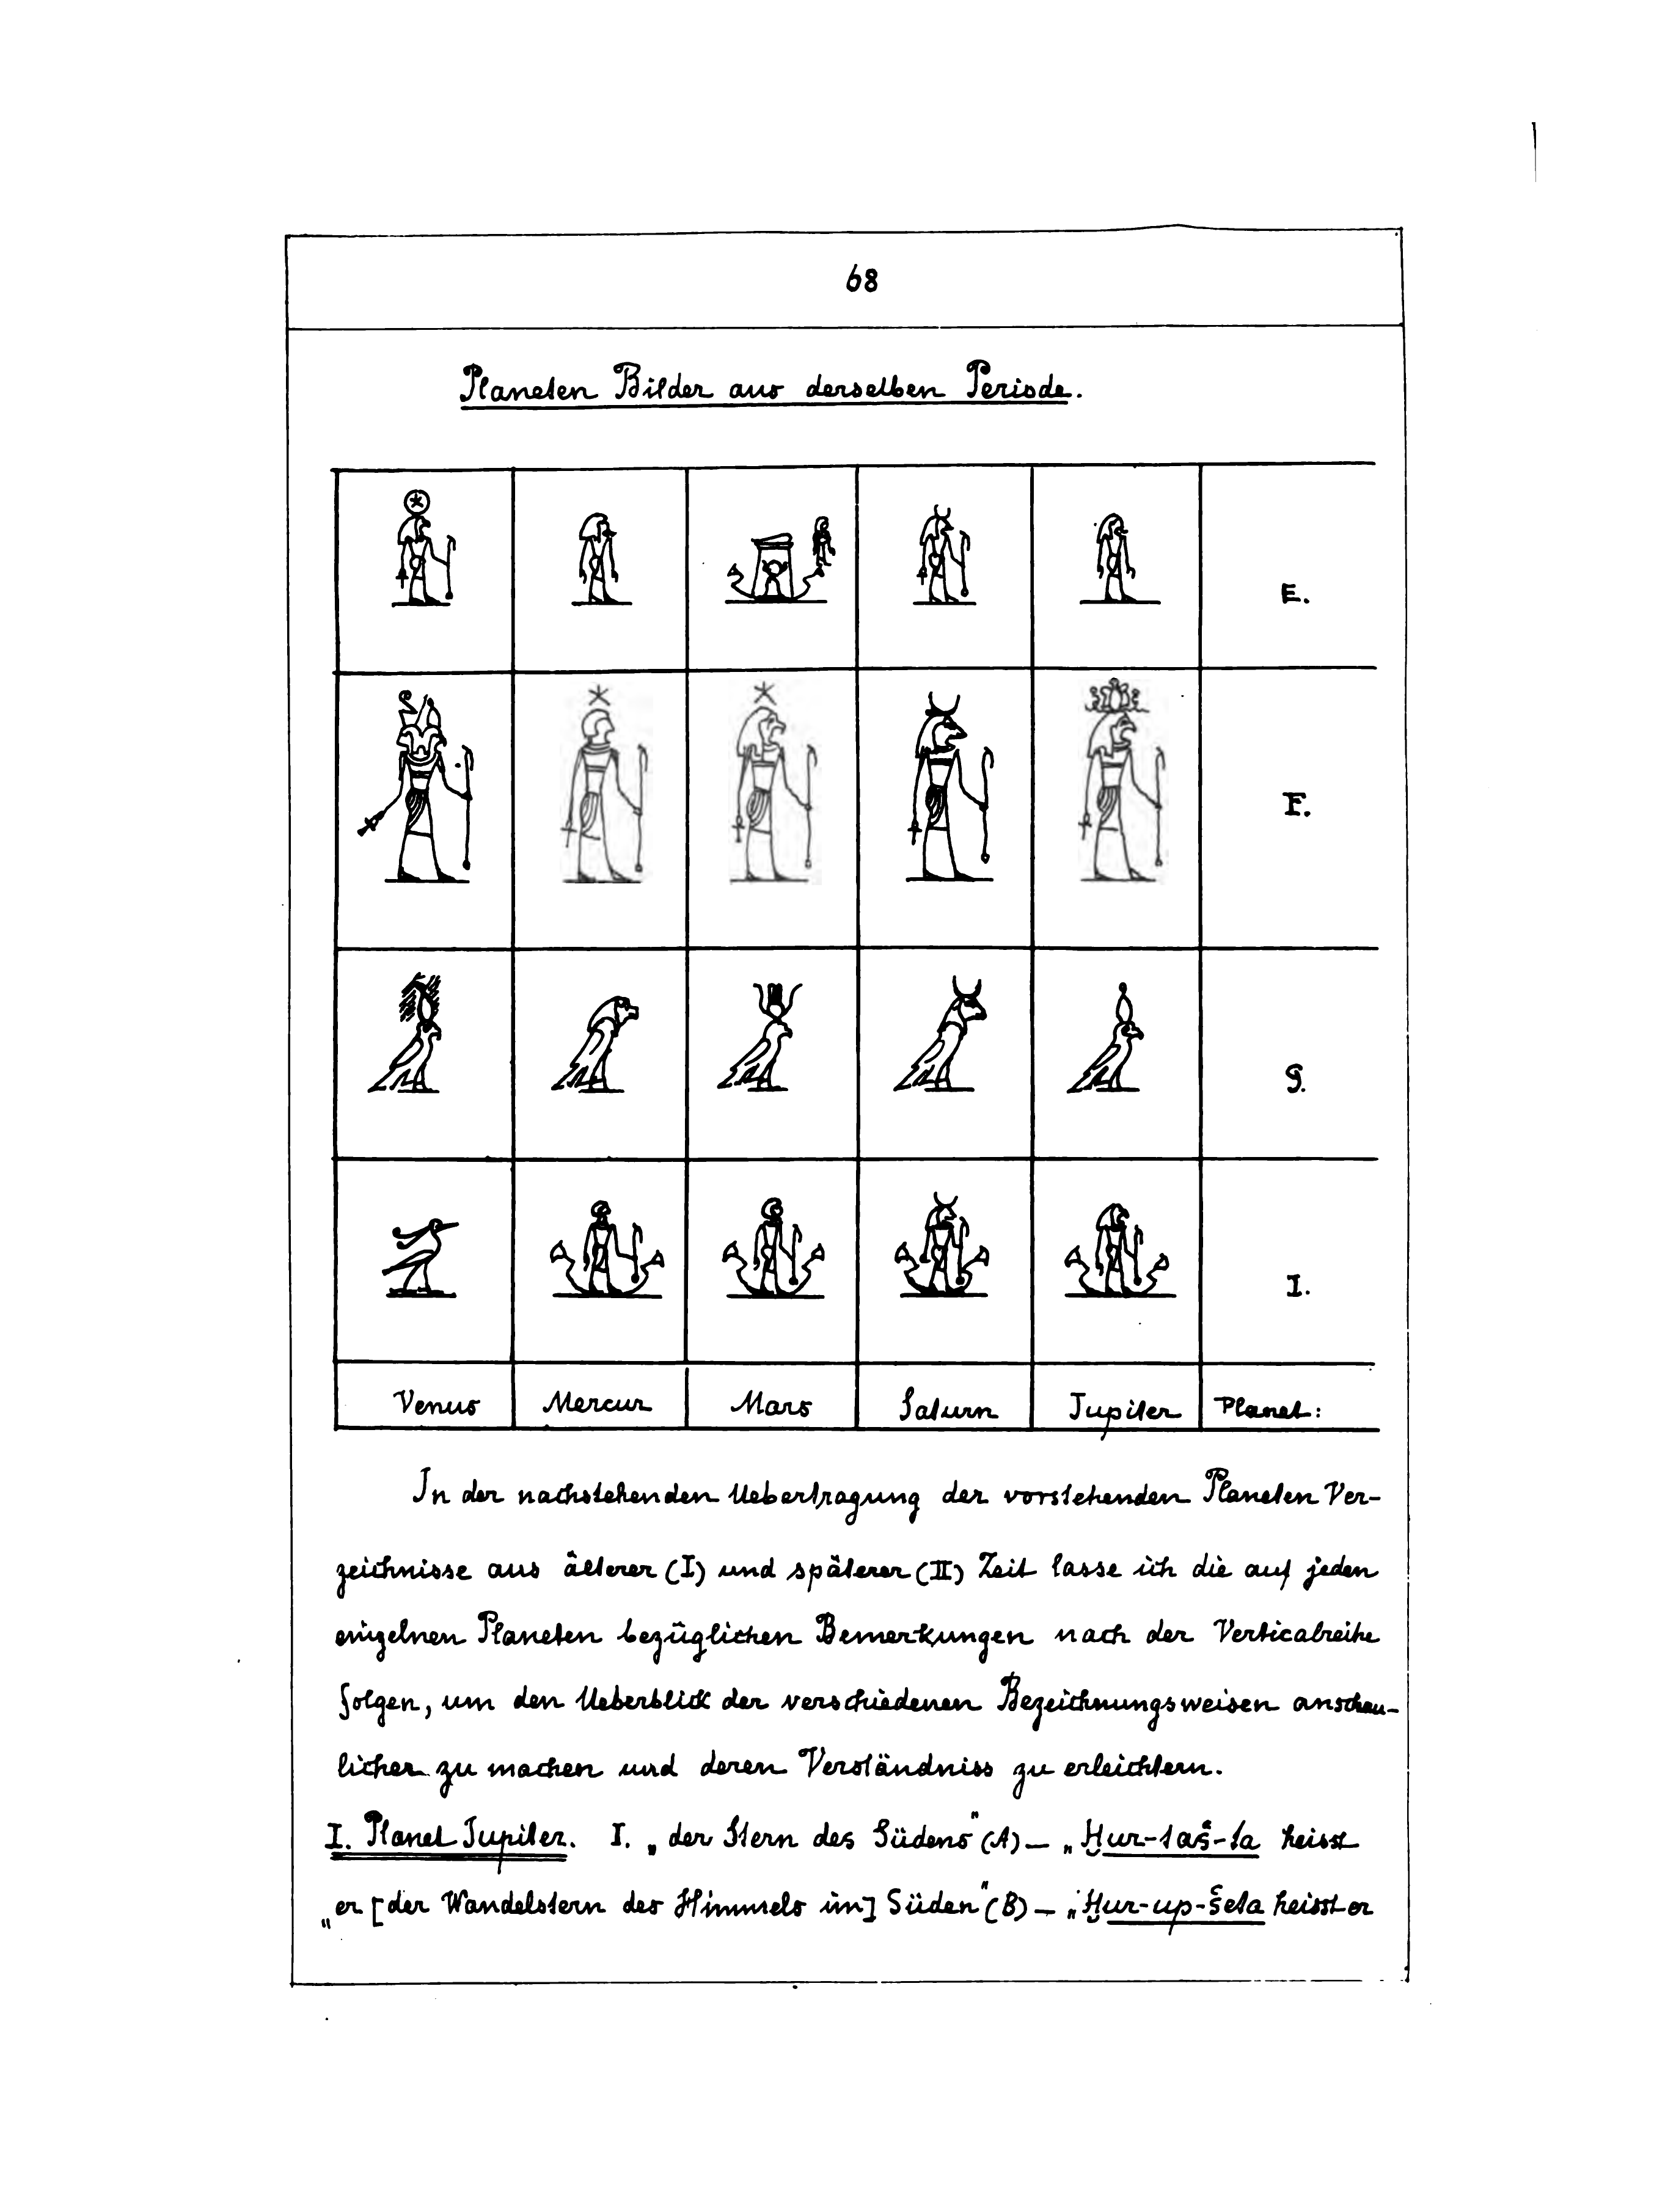 68
Planeten Bilder aus derselben Periode.
E.
F.
G.
I.
Venus Mercur Mars Saturn Jupiter Planet:
In der nachstehenden Uebertragung der vorstehenden Planeten Ver-
zeichnisse aus älterer (I) und späterer (II) Zeit lasse ich die auf jeden
einzelnen Planeten bezüglichen Bemerkungen nach der Verticalreihe
folgen, um den Ueberblick der verschiedenen Bezeichnungsweisen anschau-
licher zu machen und deren Verständniss zu erleichtern.
I. Planet Jupiter. I. „der Stern des Südens" (A) — „Ḥur-taš-ta heisst
„er [der Wandelstern des Himmels im] Süden" (B) — „Ḥur-up-šeta heisst er